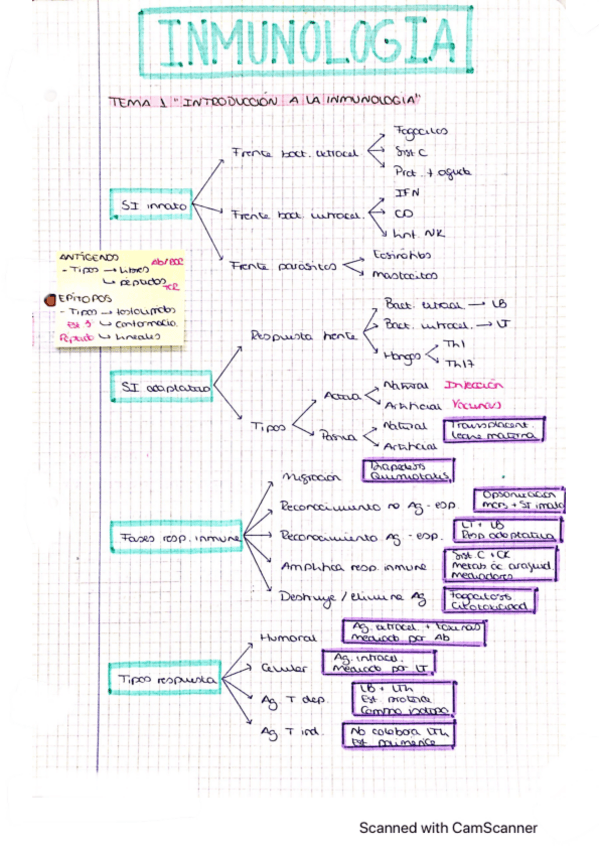 INMUNOLOGIA
TEMA 1 "INTRODUCCIÓN A LA INMUNOLOGIA"
SI innato
Frente bact. extracel
Fagocitos
Sist C
Prot. + aguda
Frente bact. intracel.
IFN
CD
Linf NK
Frente parásitos
Eosinófilos
Mastocitos
ANTÍGENOS
Ab/BCR
- Tipos → Libres
↳ péptidos
TCR
EPÍTOPOS
- Tipos →
Est 3ª ↳ Conformacio.
Péptido ↳ Lineales
SI adaptativo
Respuesta frente
Bact. extracel → LB
Bact. intracel. → LT
Hongos
Th1
Th17
Tipos
Activa
Natural Infección
Artificial Vacunas
Pasiva
Natural
Transplacent
Leche materna
Artificial
Fases resp. inmune
Migración
Diapedesis
Quimiotaxis
Reconocimiento no Ag-esp.
Opsonización
+ SI innato
Reconocimiento Ag-esp.
LT + LB
Resp adaptativa
Amplifica resp. inmune
Sist. C + CK
Metab ác araquid.
Mediadores
Destruye/elimina Ag
Fagocitosis
Citotoxicidad
Tipos respuesta
Humoral
Ag. extracel + toxinas
Mediado por Ab
Celular
Ag. intracel.
Mediado por LT
Ag T dep.
LB + LTh
Est proteica
Cambio isotipo
Ag T ind.
No colabora LTh
Est polimérica
Scanned with CamScanner